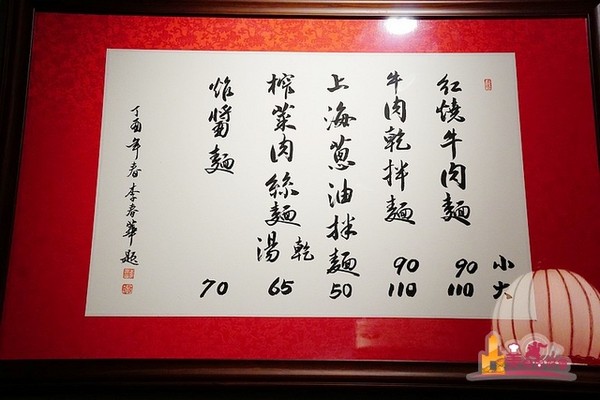 小 大
紅燒牛肉麵 90 110
牛肉乾拌麵 90 110
上海蔥油拌麵 50
榨菜肉絲麵 乾 湯 65
炸醬麵 70
丁酉年春李春華題